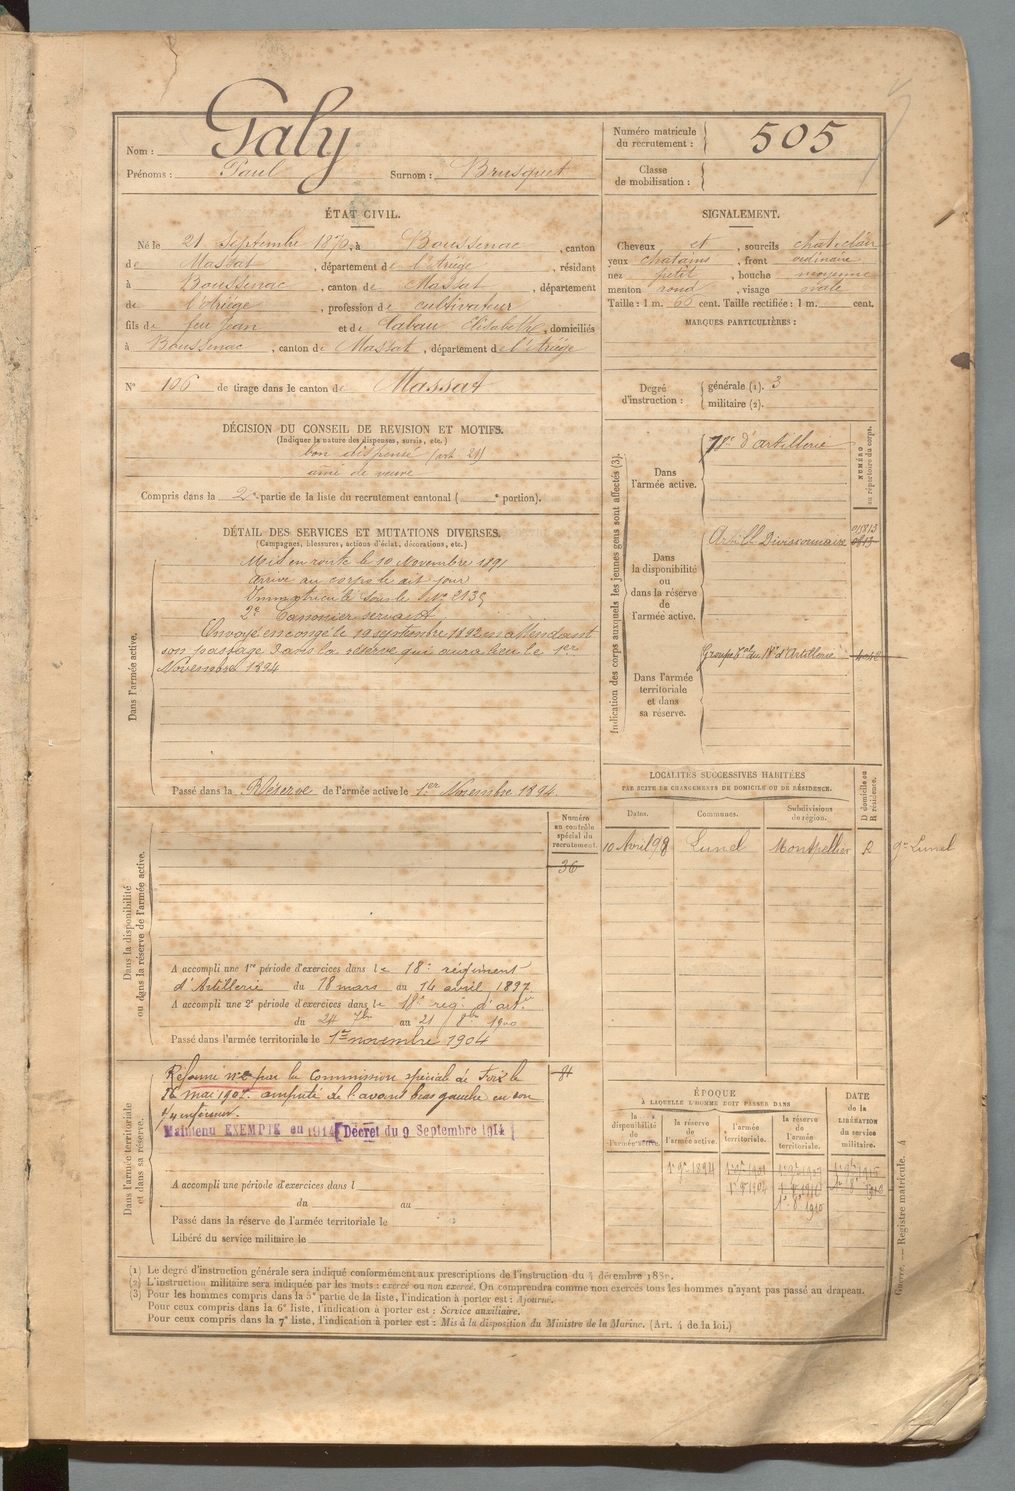 Nom : Galy
Prénoms : Paul Surnom : Brusquet
Numéro matricule du recrutement : 505
Classe de mobilisation :
ÉTAT CIVIL.
Né le 21 Septembre 1870, à Boussenac, canton
de Massat, département de l'Ariége, résidant
à Boussenac, canton de Massat, département
de l'Ariége, profession de cultivateur
fils de feu Jean et de Cabau Elisabeth, domiciliés
à Boussenac, canton de Massat, département de l'Ariége
SIGNALEMENT.
Cheveux et, sourcils chat. clair
yeux chatains, front ordinaire
nez petit, bouche moyenne
menton rond, visage ovale
Taille : 1 m. 66 cent. Taille rectifiée : 1 m. cent.
MARQUES PARTICULIÈRES :
N° 106 de tirage dans le canton de Massat
Degré d'instruction : générale (1). 3
militaire (2).
DÉCISION DU CONSEIL DE REVISION ET MOTIFS.
(Indiquer la nature des dispenses, sursis, etc.)
bon dispensé (art. 21)
ainé de veuve
Compris dans la 2e partie de la liste du recrutement cantonal ( e portion).
DÉTAIL DES SERVICES ET MUTATIONS DIVERSES.
(Campagnes, blessures, actions d'éclat, décorations, etc.)
Dans l'armée active.
Mis en route le 10 Novembre 1891
arrivé au corps le dit jour
Immatriculé sous le No 2135
2e Canonnier servant
Envoyé en congé le 19 septembre 1892 en attendant
son passage dans la réserve qui aura lieu le 1er
Novembre 1894
Passé dans la Réserve de l'armée active le 1er Novembre 1894.
Indication des corps auxquels les jeunes gens sont affectés (3).
NUMÉRO au répertoire du corps.
Dans l'armée active.
d'artillerie
Dans la disponibilité ou dans la réserve de l'armée active.
Artill. Divisionnaire
Dans l'armée territoriale et dans sa réserve.
Groupe Tal du 18e d'Artillerie
LOCALITÉS SUCCESSIVES HABITÉES
PAR SUITE DE CHANGEMENTS DE DOMICILE OU DE RÉSIDENCE.
Dates. Communes. Subdivisions de région. D domicile ou R résidence.
10 Avril 98 Lunel Montpellier R Lunel
Dans la disponibilité ou dans la réserve de l'armée active.
Numéro au contrôle spécial du recrutement.
36
A accompli une 1re période d'exercices dans le 18e régiment
d'Artillerie du 18 mars au 14 avril 1897.
A accompli une 2e période d'exercices dans le 18e reg. d'art.ie
du 24 7bre au 21 8bre 1900
Passé dans l'armée territoriale le 1er novembre 1904
Dans l'armée territoriale et dans sa réserve.
Réforme n°2 par la Commission spéciale de Foix le
16 mai 1907. amputé de l'avant bras gauche en son
1/4 inférieur.
Maintenu EXEMPTÉ en 1914 [Décret du 9 Septembre 1914]
A accompli une période d'exercices dans l
du au
Passé dans la réserve de l'armée territoriale le
Libéré du service militaire le
ÉPOQUE
À LAQUELLE L'HOMME DOIT PASSER DANS
la disponibilité de l'armée active. la réserve de l'armée active. l'armée territoriale. la réserve de l'armée territoriale. DATE de la LIBÉRATION du service militaire.
1er 9re 1894
1er 9re 1904
Guerre. — Registre matricule. 4
(1) Le degré d'instruction générale sera indiqué conformément aux prescriptions de l'instruction du 4 décembre
(2) L'instruction militaire sera indiquée par les mots : exercé ou non exercé. On comprendra comme non exercés tous les hommes n'ayant pas passé au drapeau.
(3) Pour les hommes compris dans la 5e partie de la liste, l'indication à porter est : Ajourné.
Pour ceux compris dans la 6e liste, l'indication à porter est : Service auxiliaire.
Pour ceux compris dans la 7e liste, l'indication à porter est : Mis à la disposition du Ministre de la Marine. (Art. 4 de la loi.)